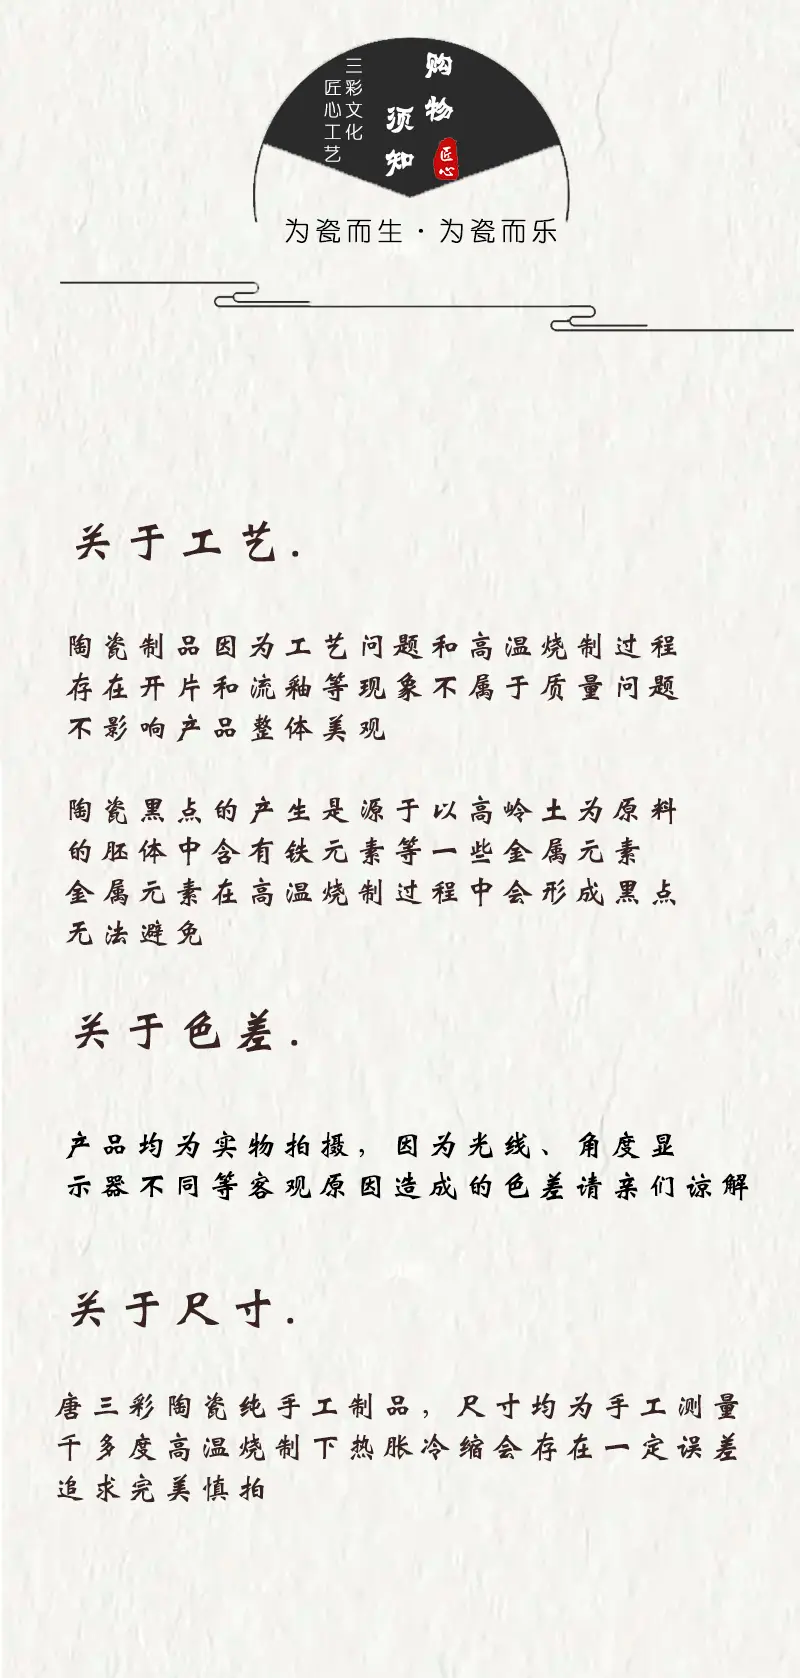 购物
须知
匠心
三彩文化
匠心工艺
为瓷而生·为瓷而乐
关于工艺.
陶瓷制品因为工艺问题和高温烧制过程
存在开片和流釉等现象不属于质量问题
不影响产品整体美观
陶瓷黑点的产生是源于以高岭土为原料
的胚体中含有铁元素等一些金属元素
金属元素在高温烧制过程中会形成黑点
无法避免
关于色差.
产品均为实物拍摄，因为光线、角度显
示器不同等客观原因造成的色差请亲们谅解
关于尺寸.
唐三彩陶瓷纯手工制品，尺寸均为手工测量
千多度高温烧制下热胀冷缩会存在一定误差
追求完美慎拍